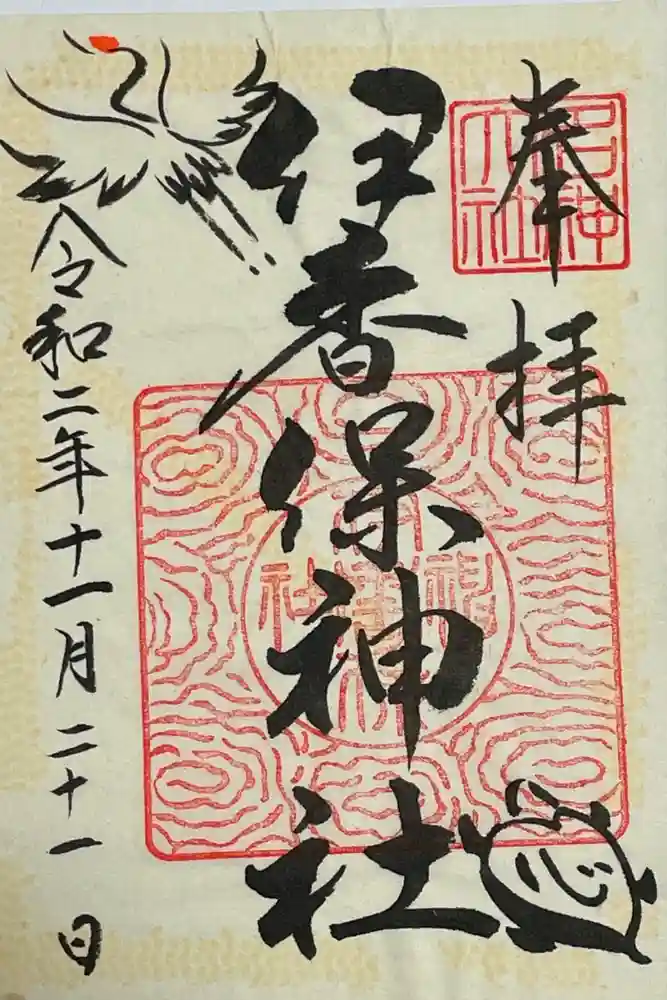 奉拝
名神大社
伊香保神社
令和二年十一月二十一日
心